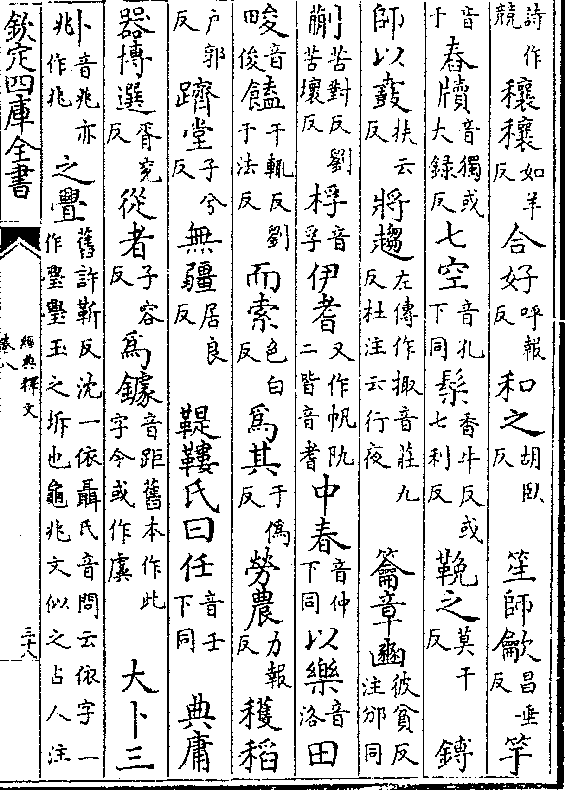 詩作競穰穰如羊反合好呼報反和之胡臥反笙師龡昌垂反竽
音于舂牘音獨或大録反七空音孔下同髹香牛反或七利反鞔之莫干反鎛
師以鼖扶云反將趨左傳作掫音莊九反杜注云行夜籥章豳彼貧反注邠同
蒯苦對反劉苦壞反桴音孚伊耆又作帆阬二皆音耆中春音仲下同以樂音洛田
畯音俊饁于輒反劉于法反而索色白反爲其于僞反勞農力報反穫稻
户郭反躋堂子兮反無疆居良反鞮鞻氏曰任音壬下同典庸
器博選胥兖反從者子容反爲鐻音距舊本作此字今或作虡大卜三
𠧞音兆亦作兆之舋舊許靳反沈一依聶氏音問云依字一作璺璺玉之坼也龜兆文似之占人注
欽定四庫全書
經典釋文
卷八